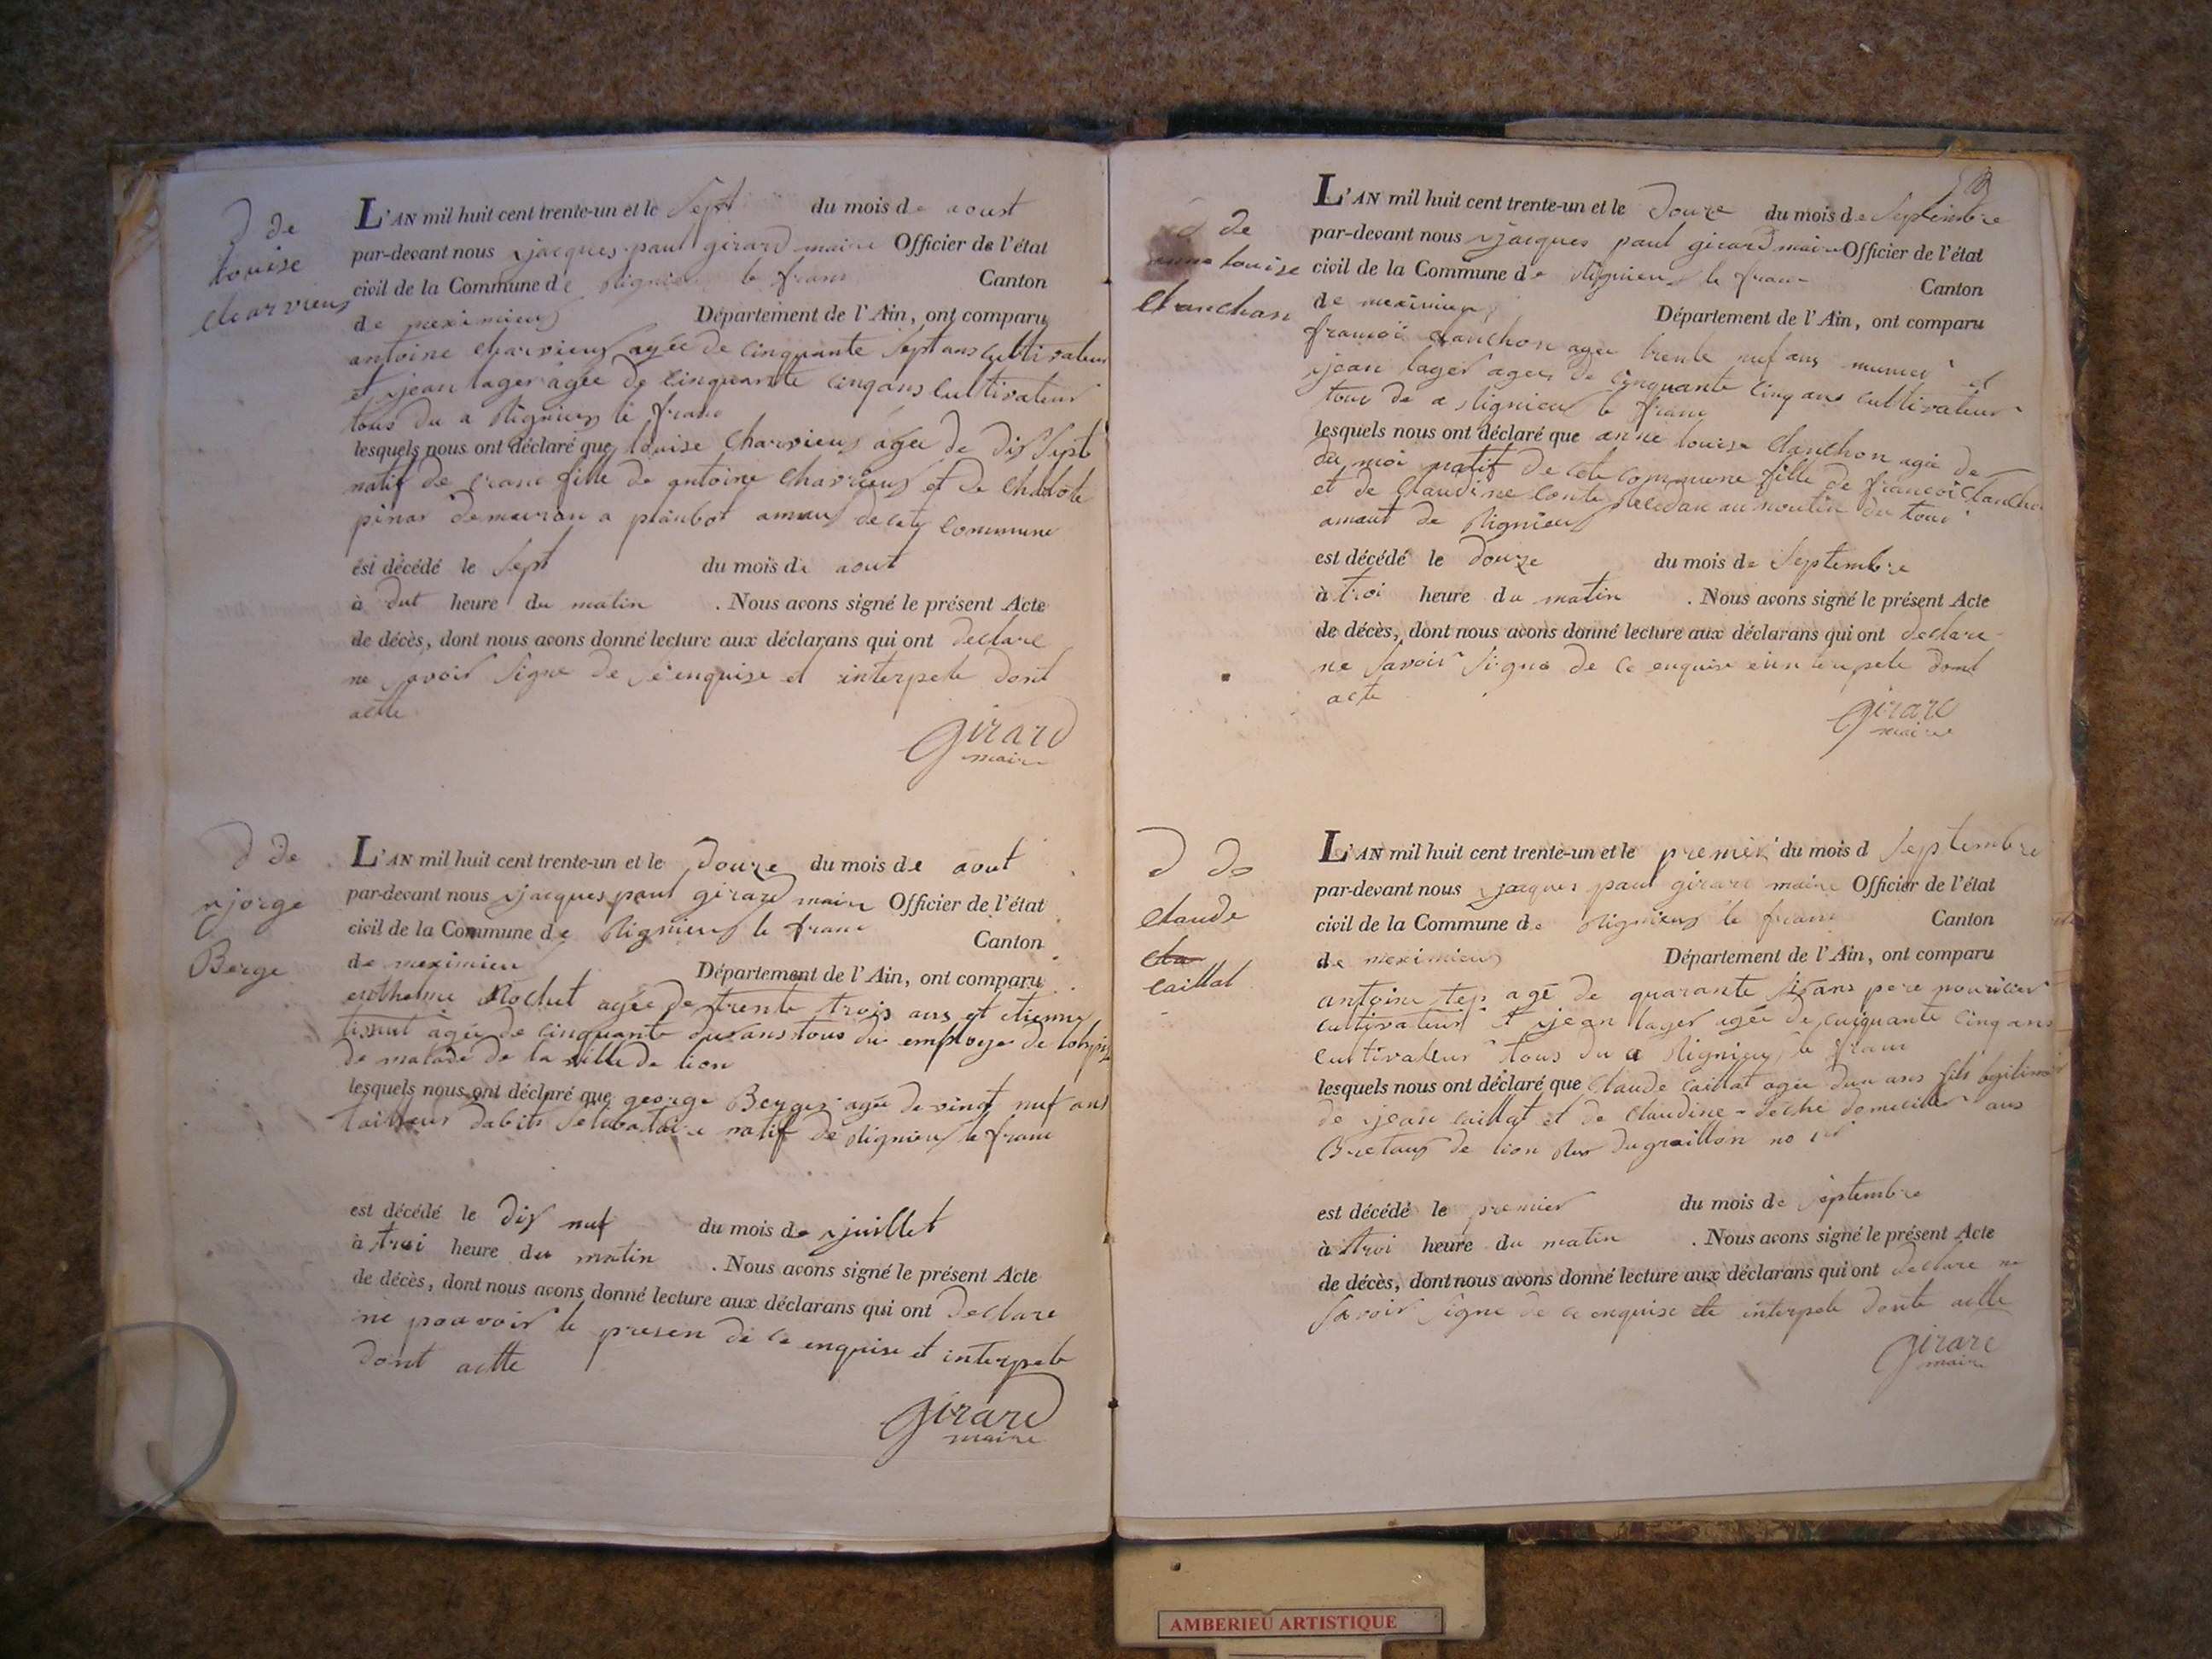 D de
Louise
Charvieux
L'AN mil huit cent trente-un et le Sept du mois de aoust
par-devant nous jacques paul girard maire Officier de l'état
civil de la Commune de Rignieux le franc Canton
de meximieux Département de l'Ain, ont comparu
antoine Charvieux agée de cinquante Sept ans cultivateur
et jean lager agée de cinquante cinq ans cultivateur
tous du a Rignieux le franc
lesquels nous ont déclaré que louise Charvieux agée de dix Sept
natif de crane fille de antoine Charvieux et de
pinar demeuran a amau de cety Commune
est décédé le Sept du mois de aout
à heure du matin . Nous avons signé le présent Acte
de décès, dont nous avons donné lecture aux déclarans qui ont declare
ne Savoir Signe de Se enquise et interpele dont
actte
girard
maire
D de
jorge
Berge
L'AN mil huit cent trente-un et le Douze du mois de aout
par-devant nous jacques paul girard maire Officier de l'état
civil de la Commune de Rignieux le franc Canton
de meximieu Département de l'Ain, ont comparu
Rochet agée de trente trois ans et etienne
tissut agée de cinquante dus ans tous du employe de
de malade de la ville de lion
lesquels nous ont déclaré que george Berger agée de vinct nuf ans
tailleur dabits natif de Rignieux le franc
est décédé le dix nuf du mois de juillet
à troi heure du matin . Nous avons signé le présent Acte
de décès, dont nous avons donné lecture aux déclarans qui ont Declare
ne pouvoir le presen de ce enquise et interpele
dont actte
girard
maire
D de
anne Louise
Clanchon
L'AN mil huit cent trente-un et le Douze du mois de Septembre
par-devant nous jacques paul girard maire Officier de l'état
civil de la Commune de Rignieux le franc Canton
de meximieux Département de l'Ain, ont comparu
francoi Clanchon agee trente nuf ans et
jean lager agee de cinquante cinq ans cultivateur
tous de a Rignieux le franc
lesquels nous ont déclaré que anne louise Clanchon agée de
du moi natif de cete commune fille de francoi Clanchon
et de Claudine conte au moulin de
amaut de Rignieux
est décédé le Douze du mois de Septembre
à troi heure du matin . Nous avons signé le présent Acte
de décès, dont nous avons donné lecture aux déclarans qui ont declare
ne Savoir Signe de ce enquise dont
acte
girard
maire
D de
Claude
Cla
Caillat
L'AN mil huit cent trente-un et le premier du mois d Septembre
par-devant nous jacques paul girard maire Officier de l'état
civil de la Commune de Rignieux le franc Canton
de meximieux Département de l'Ain, ont comparu
antoine agé de quarante Six ans pere nouricier
cultivateur et jean lager agée de cinquante cinq ans
cultivateur tous du a Rignieux le franc
lesquels nous ont déclaré que Claude Caillat agée dun ans fils legitime
de jean Caillat et de Claudine domecilier aus
Bretaux de lion Rus dugraillon no
est décédé le premier du mois de Septembre
à troi heure du matin . Nous avons signé le présent Acte
de décès, dont nous avons donné lecture aux déclarans qui ont declare ne
Savoir Signe de ce enquise ete interpele donte actte
girard
maire
AMBERIEU ARTISTIQUE